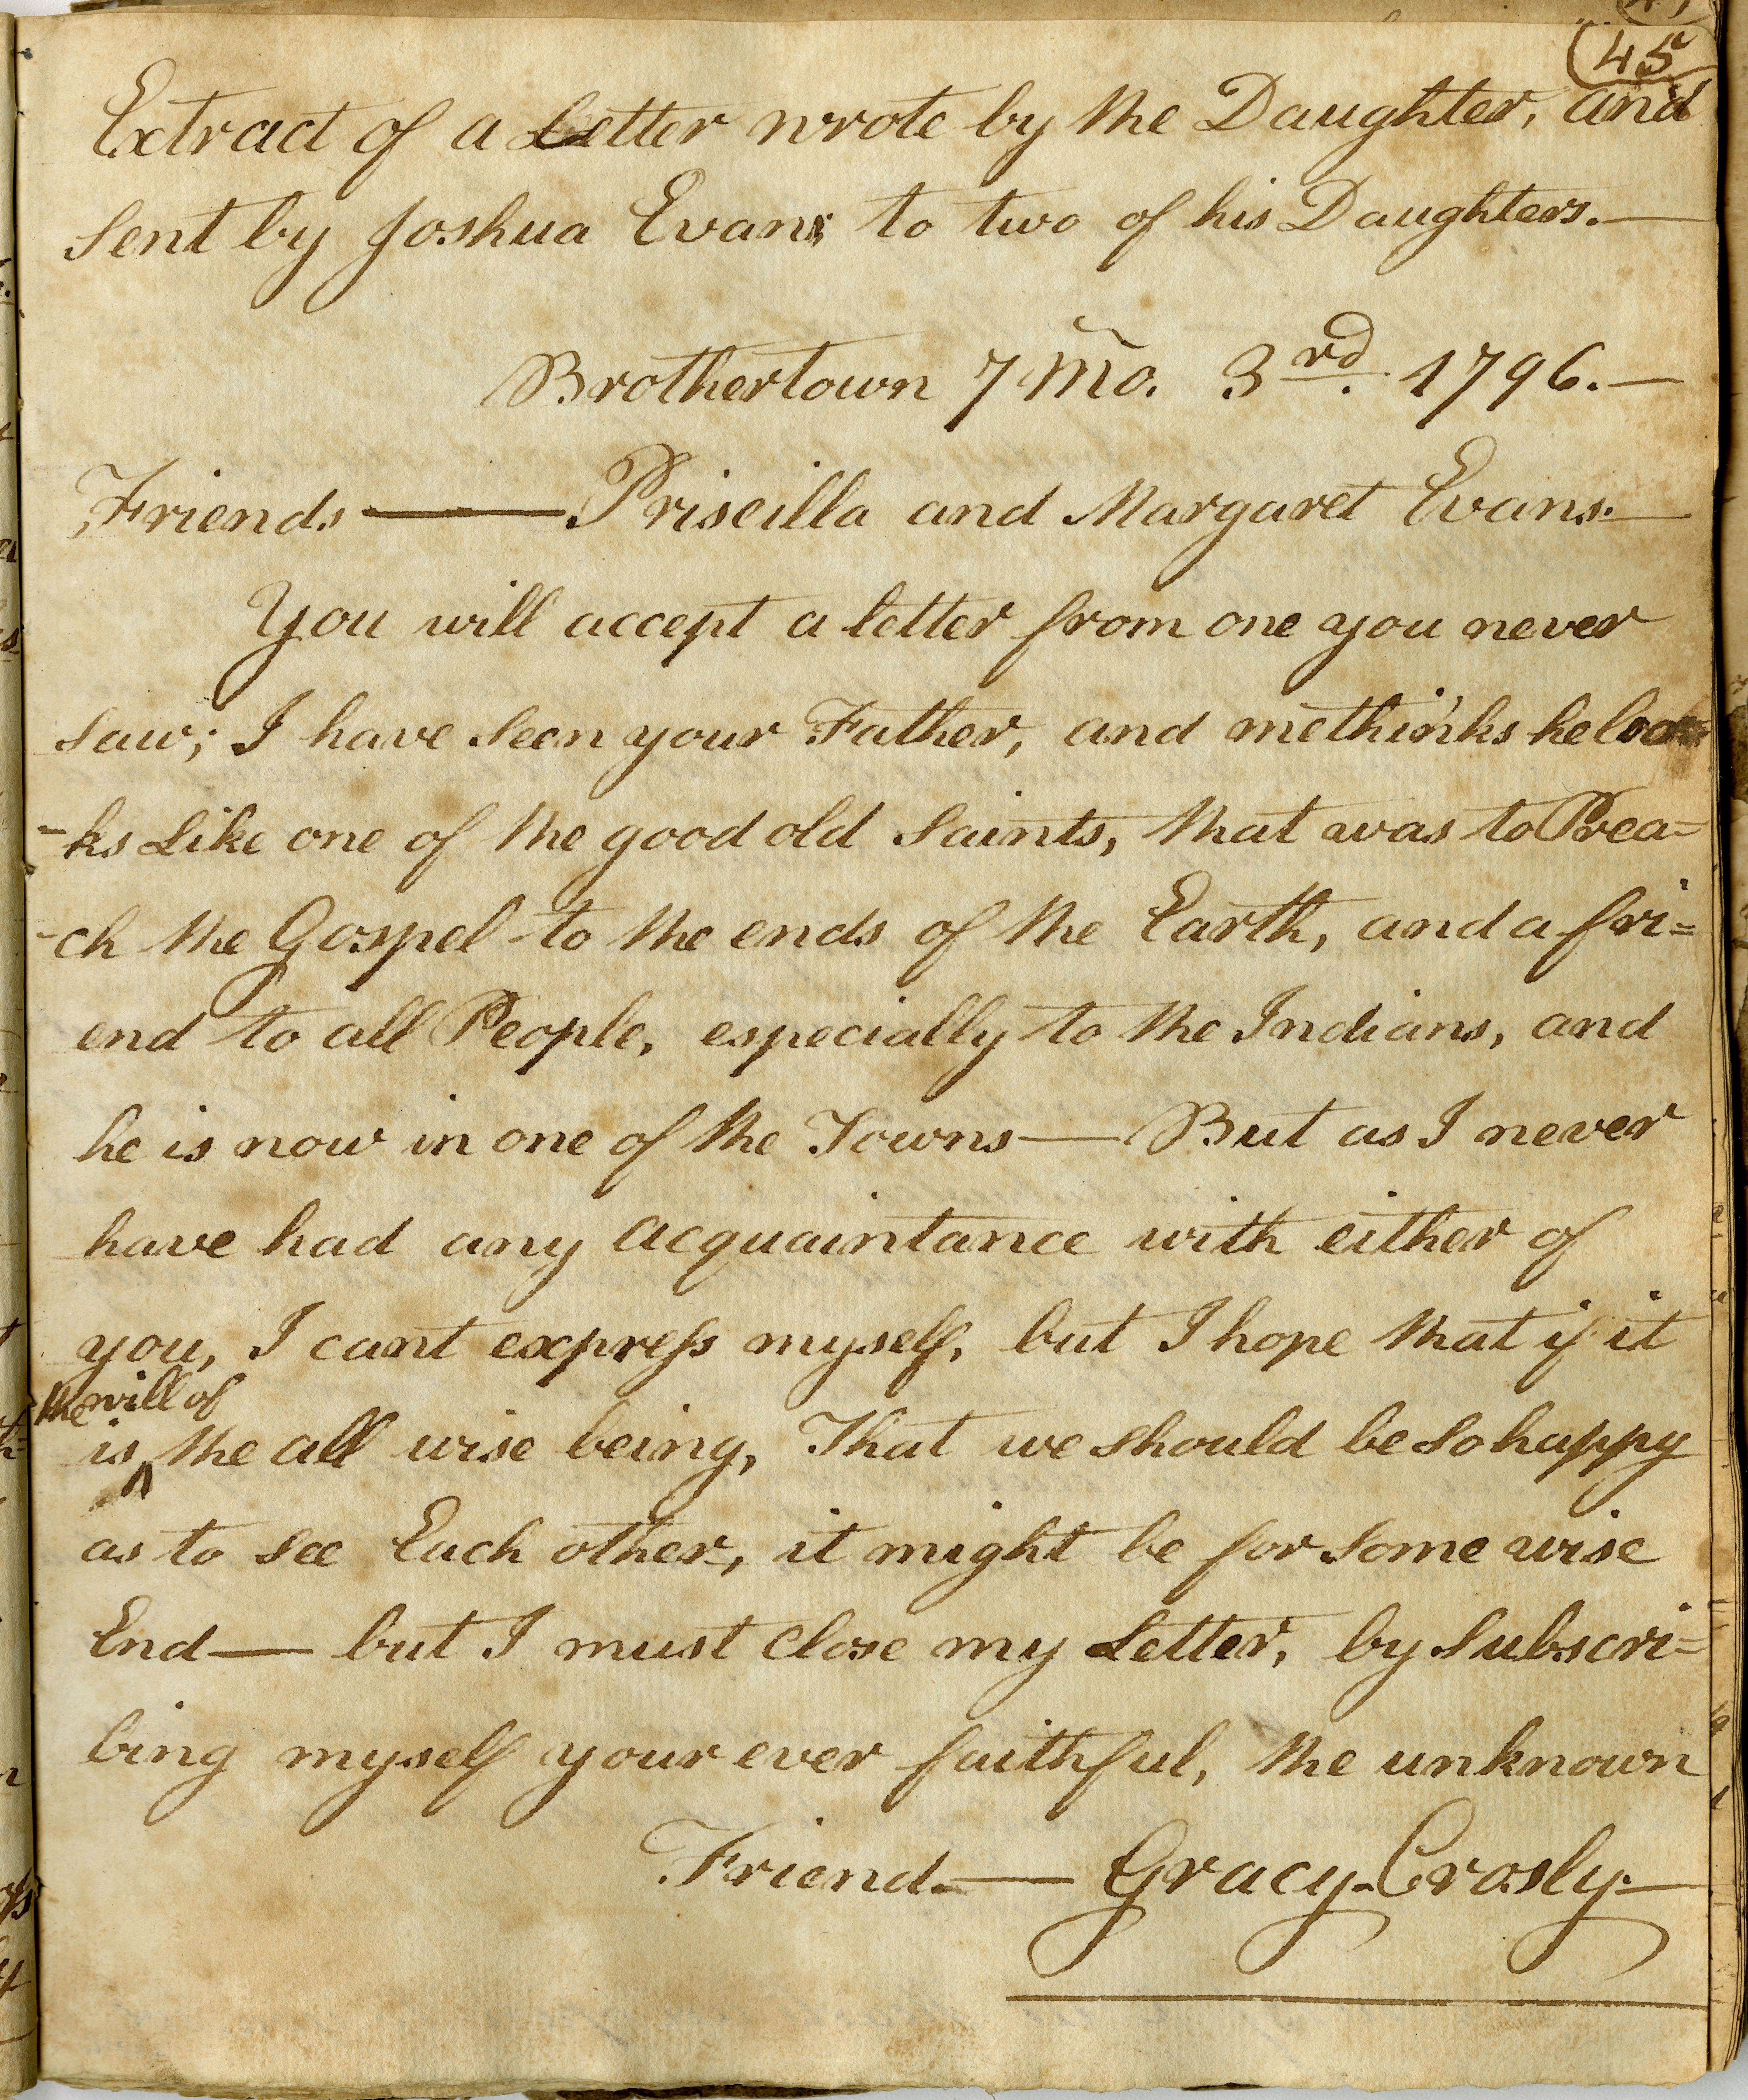 45
Extract of a Letter wrote by the Daughter, and
Sent by Joshua Evans to two of his Daughters.—
Brothertown 7 Mo. 3rd. 1796.—
Friends —— Priscilla and Margaret Evans.—
You will accept a letter from one you never
saw; I have seen your Father, and methinks he loo-
-ks Like one of the good old Saints, that was to Prea=
-ch the Gospel to the ends of the Earth, and a fri=
end to all People, especially to the Indians, and
he is now in one of the Towns — But as I never
have had any acquaintance with either of
you, I cant express myself, but I hope that if it
the will of
is ^ the all wise being, That we should be so happy
as to see Each other, it might be for some wise
End — but I must close my Letter, by Subscri=
bing myself your ever faithful, the unknown
Friend. — Gracy Crosly.—